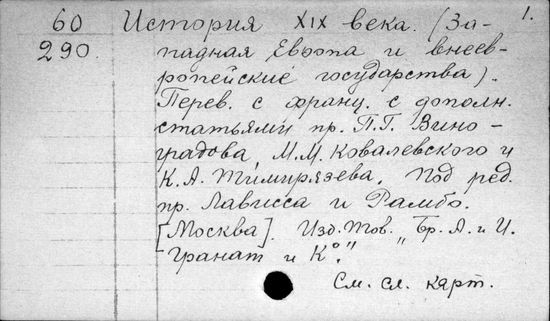 1.
60 История XIX века. (За-
290. падная Европа и внеев-
ропейские государства).
Перев. с франц. с дополн.
статьями пр. П.Г. Вино-
градова, М.М. Ковалевского и
К.А. Тимирязева. Под ред.
пр. Лависса и Рамбо.
[Москва]. Изд. Тов. „Бр. А. и И.
Гранат и К°."
См. сл. карт.